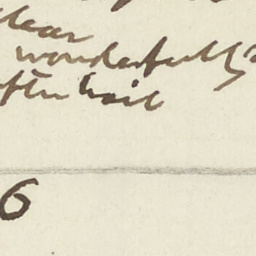 clear
wonderfully
after hail
6